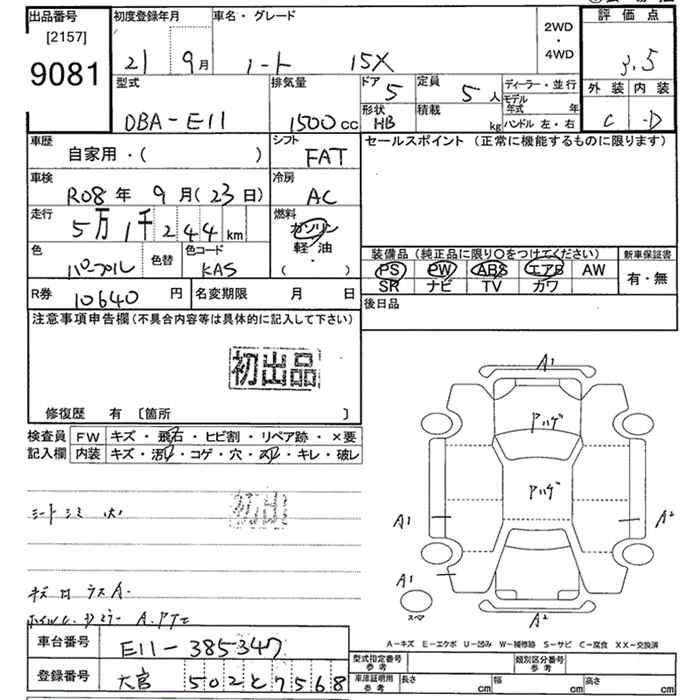 出品番号
[2157]
9081
初度登録年月
21 9月
車名・グレード
ノート 15X
2WD
・
4WD
評価点
3.5
外装 内装
C D
型式
DBA-E11
排気量
1500cc
ドア 5
形状 HB
定員 5人
積載 kg
ディーラー・並行
モデル年式 年
ハンドル 左・右
車歴
自家用・( )
シフト
FAT
車検
R08年 9月(23日)
冷房
AC
走行
5万1千244km
燃料
ガソリン
軽油
( )
色
パープル
色替
色コード
KAS
R券 10640円
名変期限 月 日
セールスポイント(正常に機能するものに限ります)
装備品(純正品に限り○をつけてください)
PS PW ABS エアB AW
SR ナビ TV カワ
新車保証書
有・無
後日品
注意事項申告欄(不具合内容等は具体的に記入して下さい)
初出品
修復歴 有 〔箇所 〕
検査員記入欄
FW キズ・飛石・ヒビ割・リペア跡・×要
内装 キズ・汚レ・コゲ・穴・スレ・キレ・破レ
初出
シートシミ 大
A1
アハゲ
アハゲ
A1
A2
A1
スペア
A2
A-キズ E-エクボ U-凹み W-補修跡 S-サビ C-腐食 XX-交換済
車台番号 E11-385347
登録番号 大宮 502 と 7568
型式指定番号 参考
類別区分番号 参考
車庫証明用 参考
長さ cm
幅 cm
高さ cm